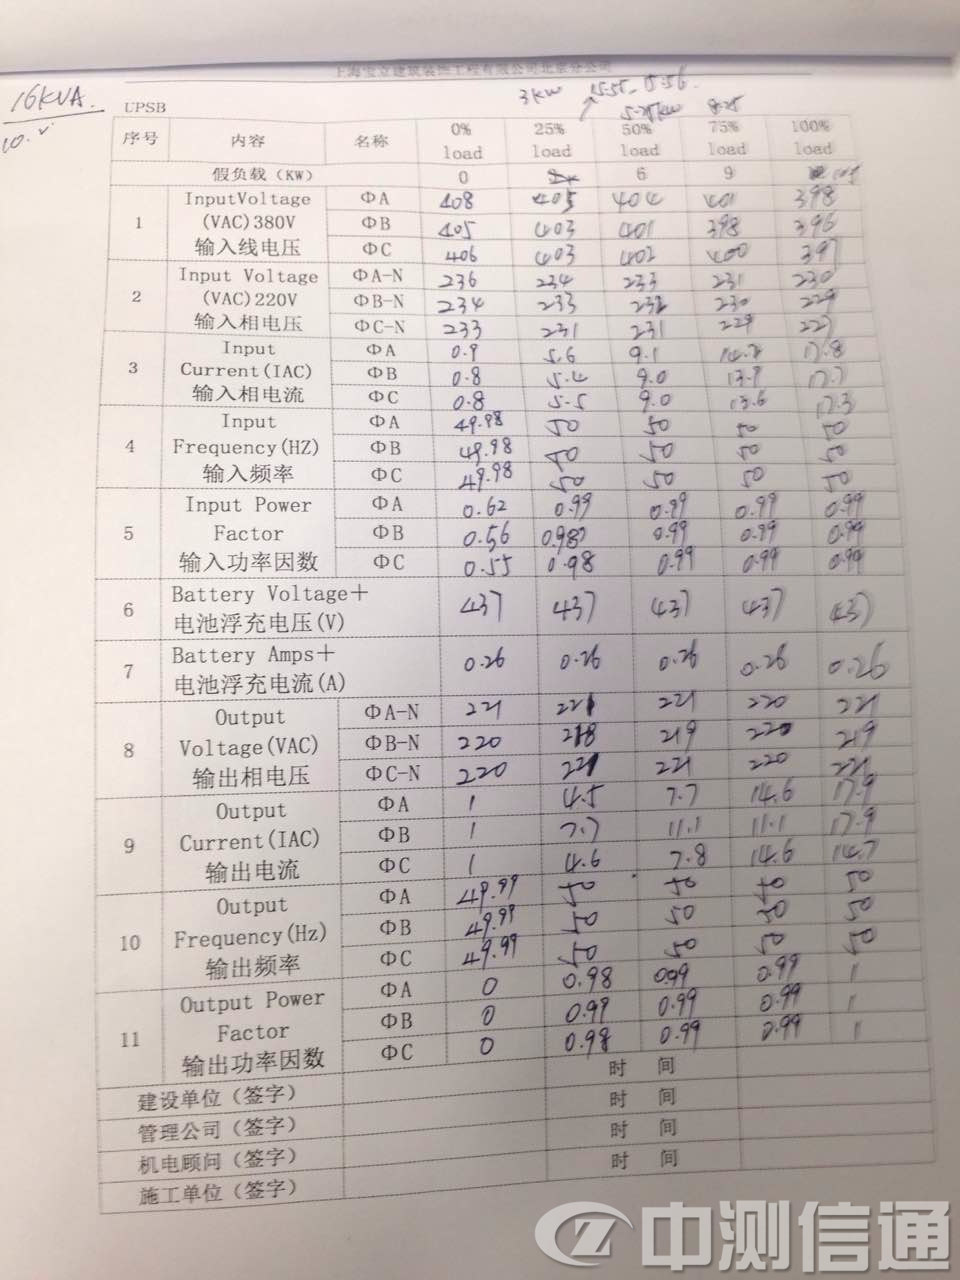 上海宝立建筑装饰工程有限公司北京分公司
16KVA.
UPSB
3KW 15:55-15:56
序号 内容 名称 0% load 25% load 50% load 75% load 100% load
假负载（KW） 0 6 9
1 InputVoltage (VAC)380V 输入线电压 ΦA 408 405 404 401 398
ΦB 405 403 401 398 396
ΦC 406 403 402 400 397
2 Input Voltage (VAC)220V 输入相电压 ΦA-N 236 234 233 231 230
ΦB-N 234 233 232 230 229
ΦC-N 233 231 231 229 227
3 Input Current(IAC) 输入相电流 ΦA 0.9 5.6 9.1 14.2 17.8
ΦB 0.8 5.4 9.0 13.9 17.7
ΦC 0.8 5.5 9.0 13.6 17.3
4 Input Frequency(HZ) 输入频率 ΦA 49.98 50 50 50 50
ΦB 49.98 50 50 50 50
ΦC 49.98 50 50 50 50
5 Input Power Factor 输入功率因数 ΦA 0.62 0.99 0.99 0.99 0.99
ΦB 0.56 0.98 0.99 0.99 0.99
ΦC 0.55 0.98 0.99 0.99 0.99
6 Battery Voltage＋ 电池浮充电压(V) 437 437 437 437 437
7 Battery Amps＋ 电池浮充电流(A) 0.26 0.26 0.26 0.26 0.26
8 Output Voltage(VAC) 输出相电压 ΦA-N 221 221 221 220 221
ΦB-N 220 218 219 220 219
ΦC-N 220 221 221 220 221
9 Output Current(IAC) 输出电流 ΦA 1 4.5 7.7 14.6 17.9
ΦB 1 7.7 11.1 11.1 17.9
ΦC 1 4.6 7.8 14.6 14.7
10 Output Frequency(Hz) 输出频率 ΦA 49.99 50 50 50 50
ΦB 49.99 50 50 50 50
ΦC 49.99 50 50 50 50
11 Output Power Factor 输出功率因数 ΦA 0 0.98 0.99 0.99 1
ΦB 0 0.99 0.99 0.99 1
ΦC 0 0.98 0.99 0.99 1
建设单位（签字） 时 间
管理公司（签字） 时 间
机电顾问（签字） 时 间
施工单位（签字） 时 间
中测信通